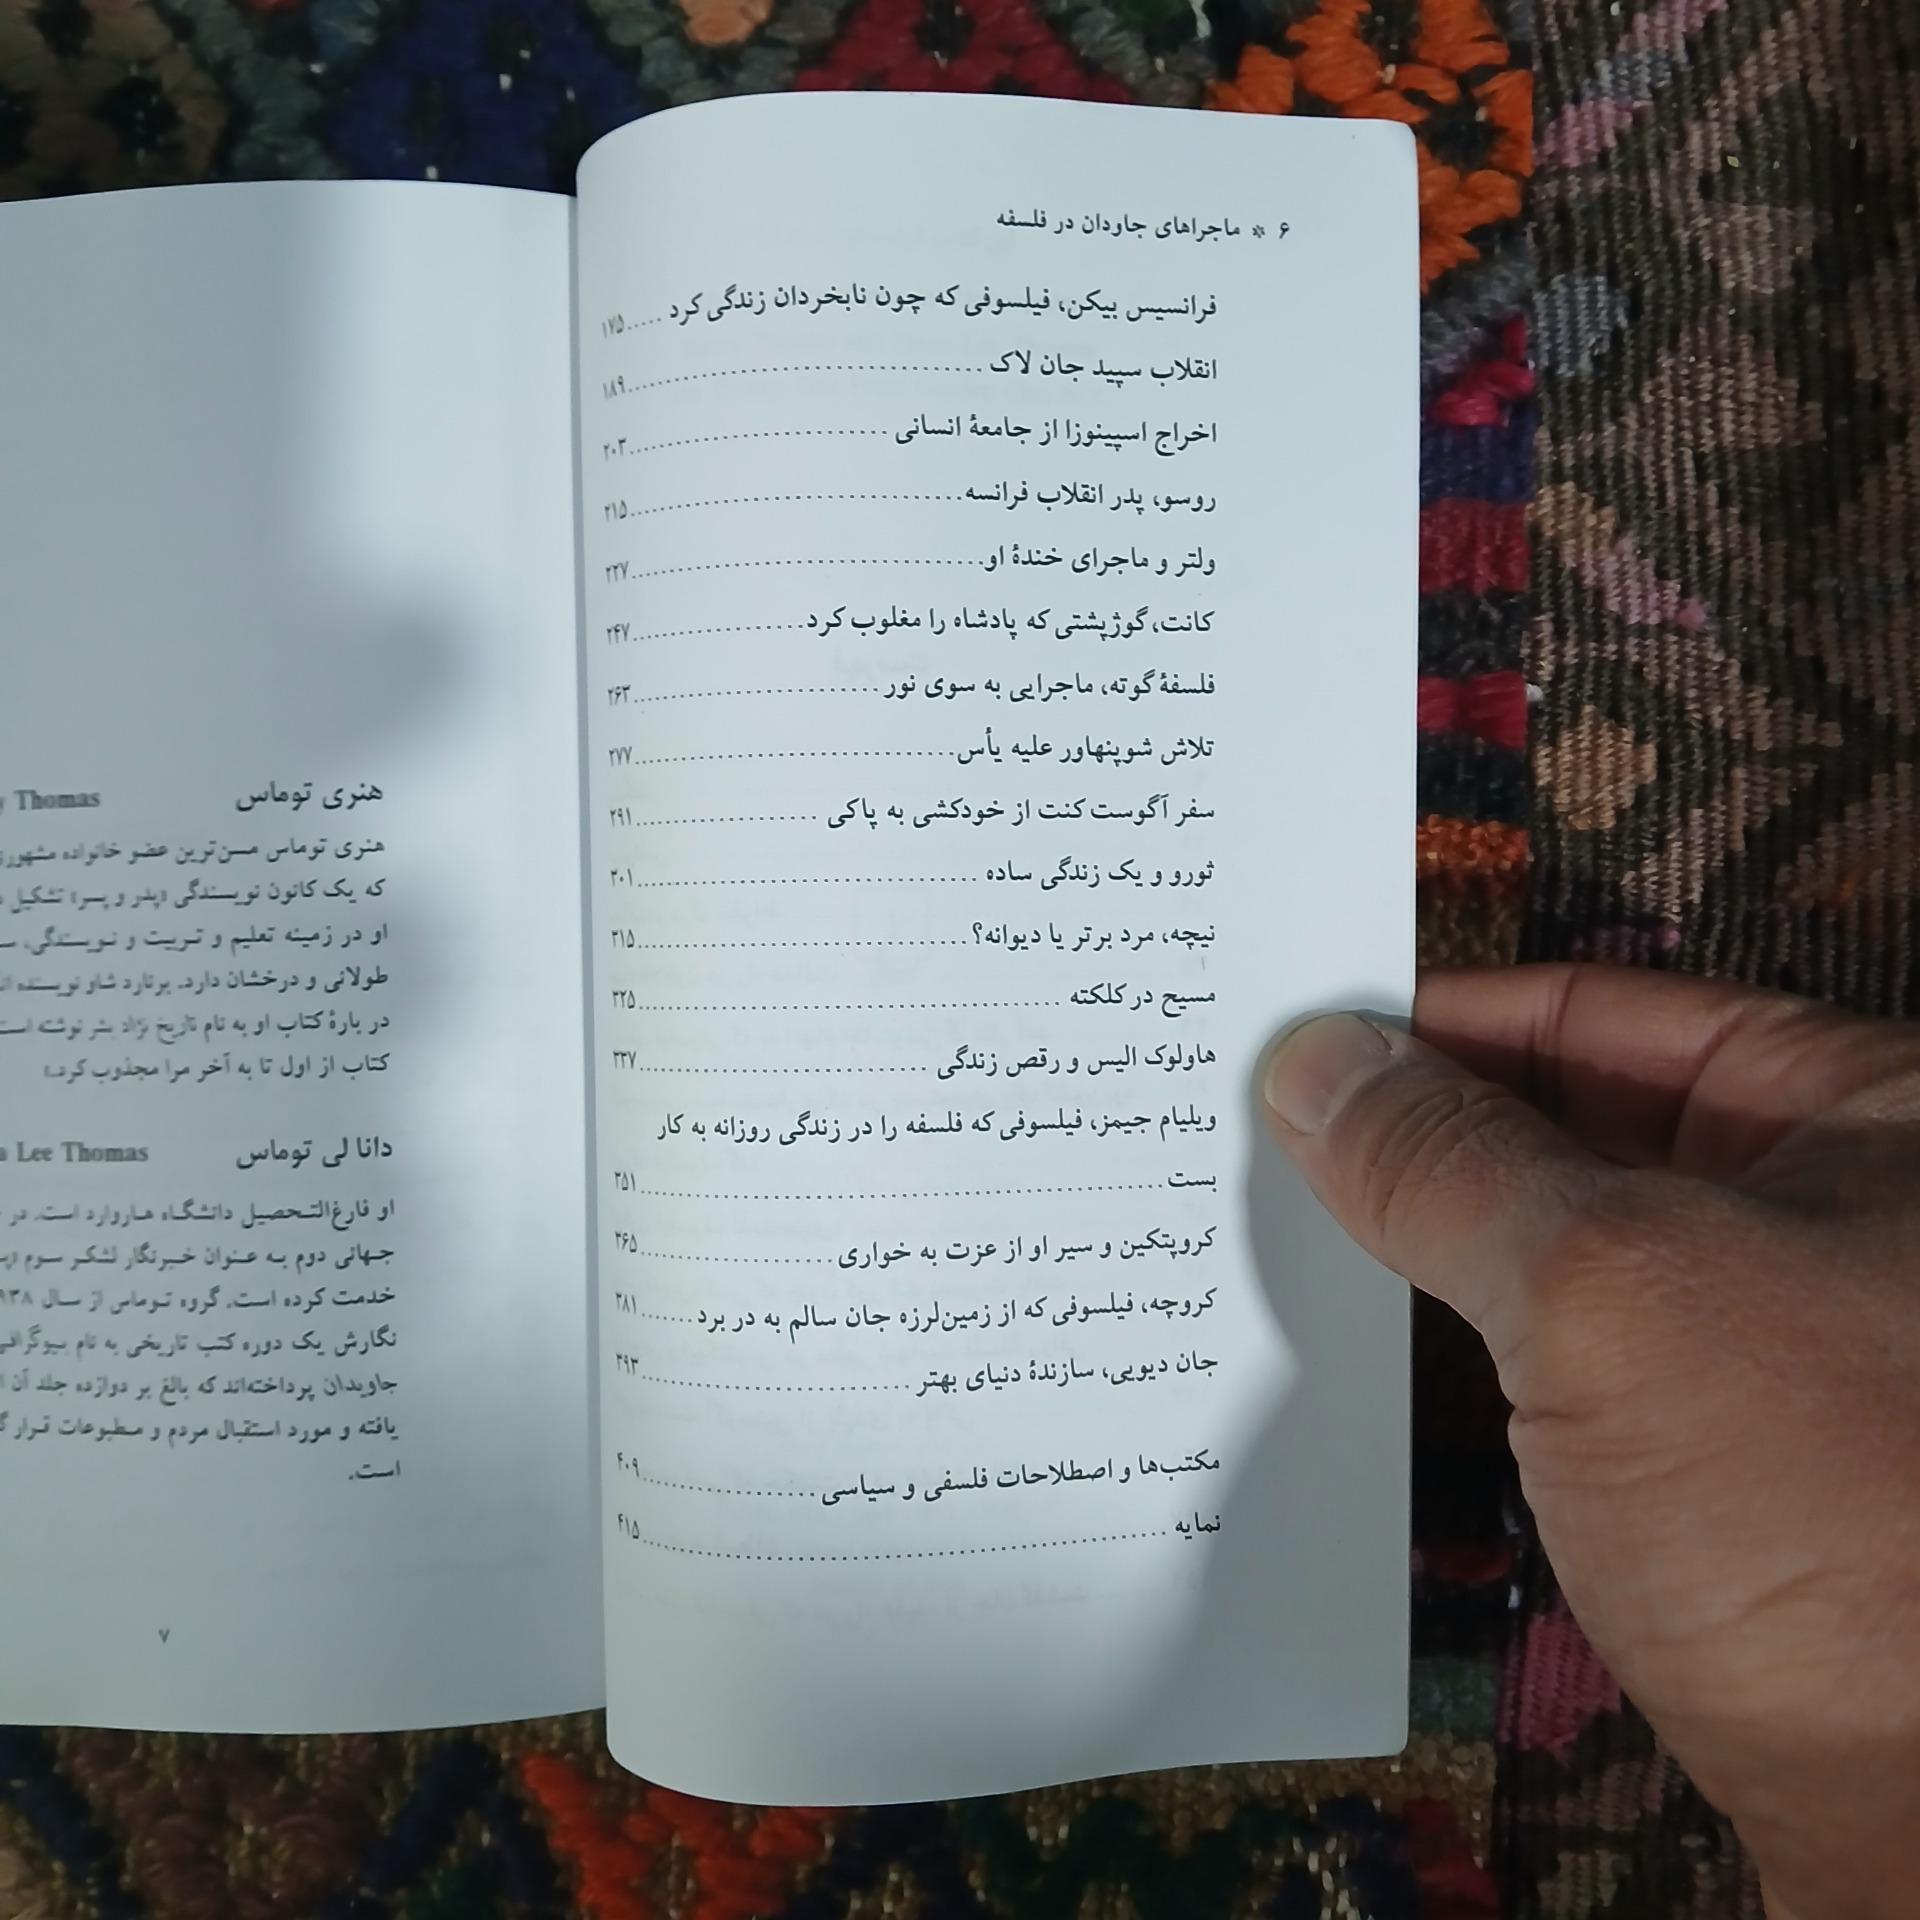 ۶ * ماجراهای جاودان در فلسفه
فرانسیس بیکن، فیلسوفی که چون نابخردان زندگی کرد ..... ۱۷۵
انقلاب سپید جان لاک ..... ۱۸۹
اخراج اسپینوزا از جامعهٔ انسانی ..... ۲۰۳
روسو، پدر انقلاب فرانسه ..... ۲۱۵
ولتر و ماجرای خندهٔ او ..... ۲۲۷
کانت، گوژپشتی که پادشاه را مغلوب کرد ..... ۲۴۷
فلسفهٔ گوته، ماجرایی به سوی نور ..... ۲۶۳
تلاش شوپنهاور علیه یأس ..... ۲۷۷
سفر آگوست کنت از خودکشی به پاکی ..... ۲۹۱
ثورو و یک زندگی ساده ..... ۳۰۱
نیچه، مرد برتر یا دیوانه؟ ..... ۳۱۵
مسیح در کلکته ..... ۳۲۵
هاولوک الیس و رقص زندگی ..... ۳۳۷
ویلیام جیمز، فیلسوفی که فلسفه را در زندگی روزانه به کار
بست ..... ۳۵۱
کروپتکین و سیر او از عزت به خواری ..... ۳۶۵
کروچه، فیلسوفی که از زمین‌لرزه جان سالم به در برد ..... ۳۸۱
جان دیویی، سازندهٔ دنیای بهتر ..... ۳۹۳
مکتب‌ها و اصطلاحات فلسفی و سیاسی ..... ۴۰۹
نمایه ..... ۴۱۵
هنری توماس Thomas
هنری توماس مسن‌ترین عضو خانواده
که یک کانون نویسندگی «پدر و پسر» تشکیل
او در زمینه تعلیم و تربیت و نویسندگی،
طولانی و درخشان دارد. برنارد شاو نویسنده
در بارهٔ کتاب او به نام تاریخ نژاد بشر نوشته است
کتاب از اول تا به آخر مرا مجذوب کرد.»
دانا لی توماس Lee Thomas
او فارغ‌التحصیل دانشگاه هاروارد است. در
جهانی دوم به عنوان خبرنگار لشکر سوم
خدمت کرده است. گروه توماس از سال
نگارش یک دوره کتب تاریخی به نام
جاویدان پرداخته‌اند که بالغ بر دوازده جلد آن
یافته و مورد استقبال مردم و مطبوعات قرار
است.
۷